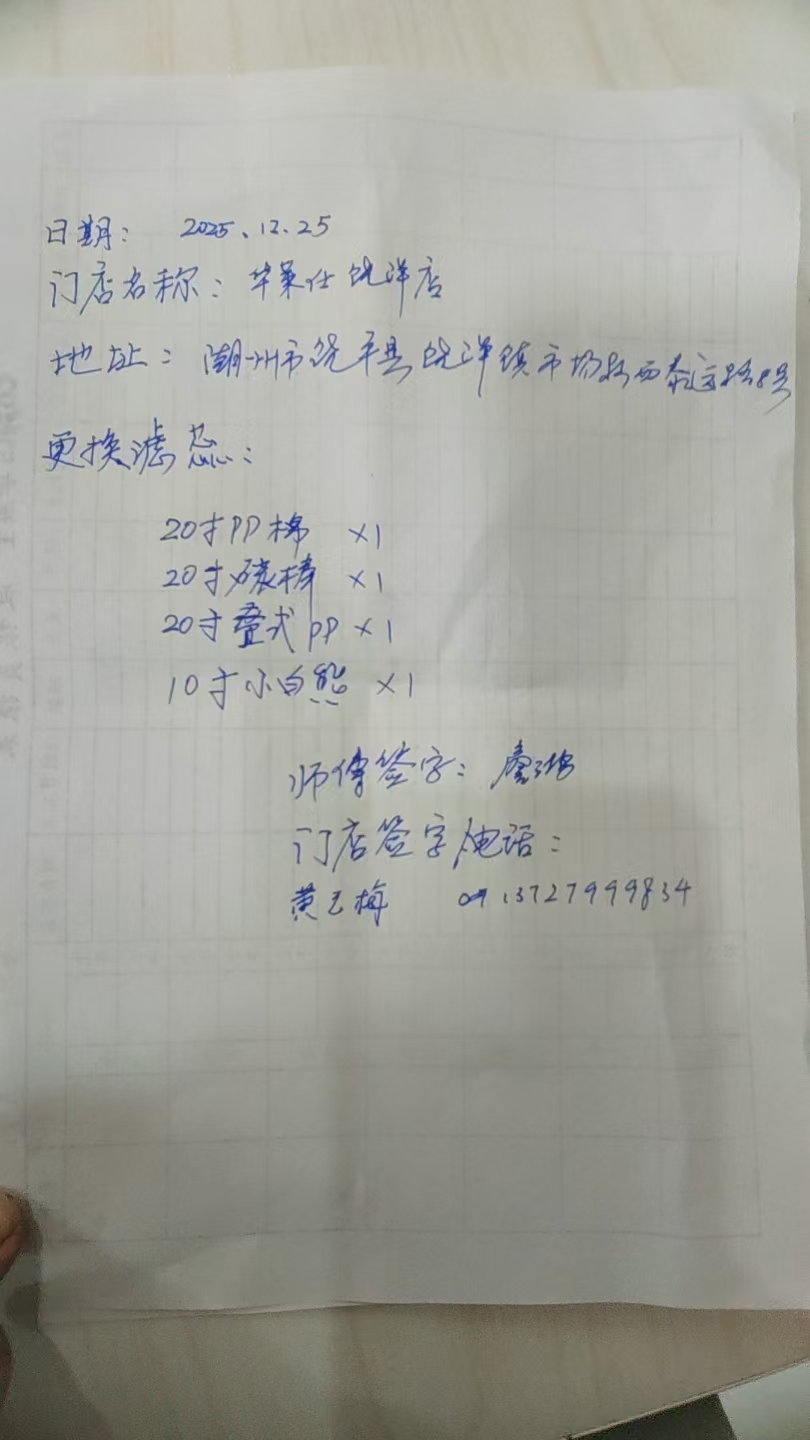 日期： 2025、12.25
门店名称：华莱仕饶洋店
地址：潮州市饶平县饶洋镇市场路西 8号
更换滤芯：
20寸PP棉 ×1
20寸碳棒 ×1
20寸叠式PP ×1
10寸小白熊 ×1
师傅签字：
门店签字/电话：
黄 梅 13727999834